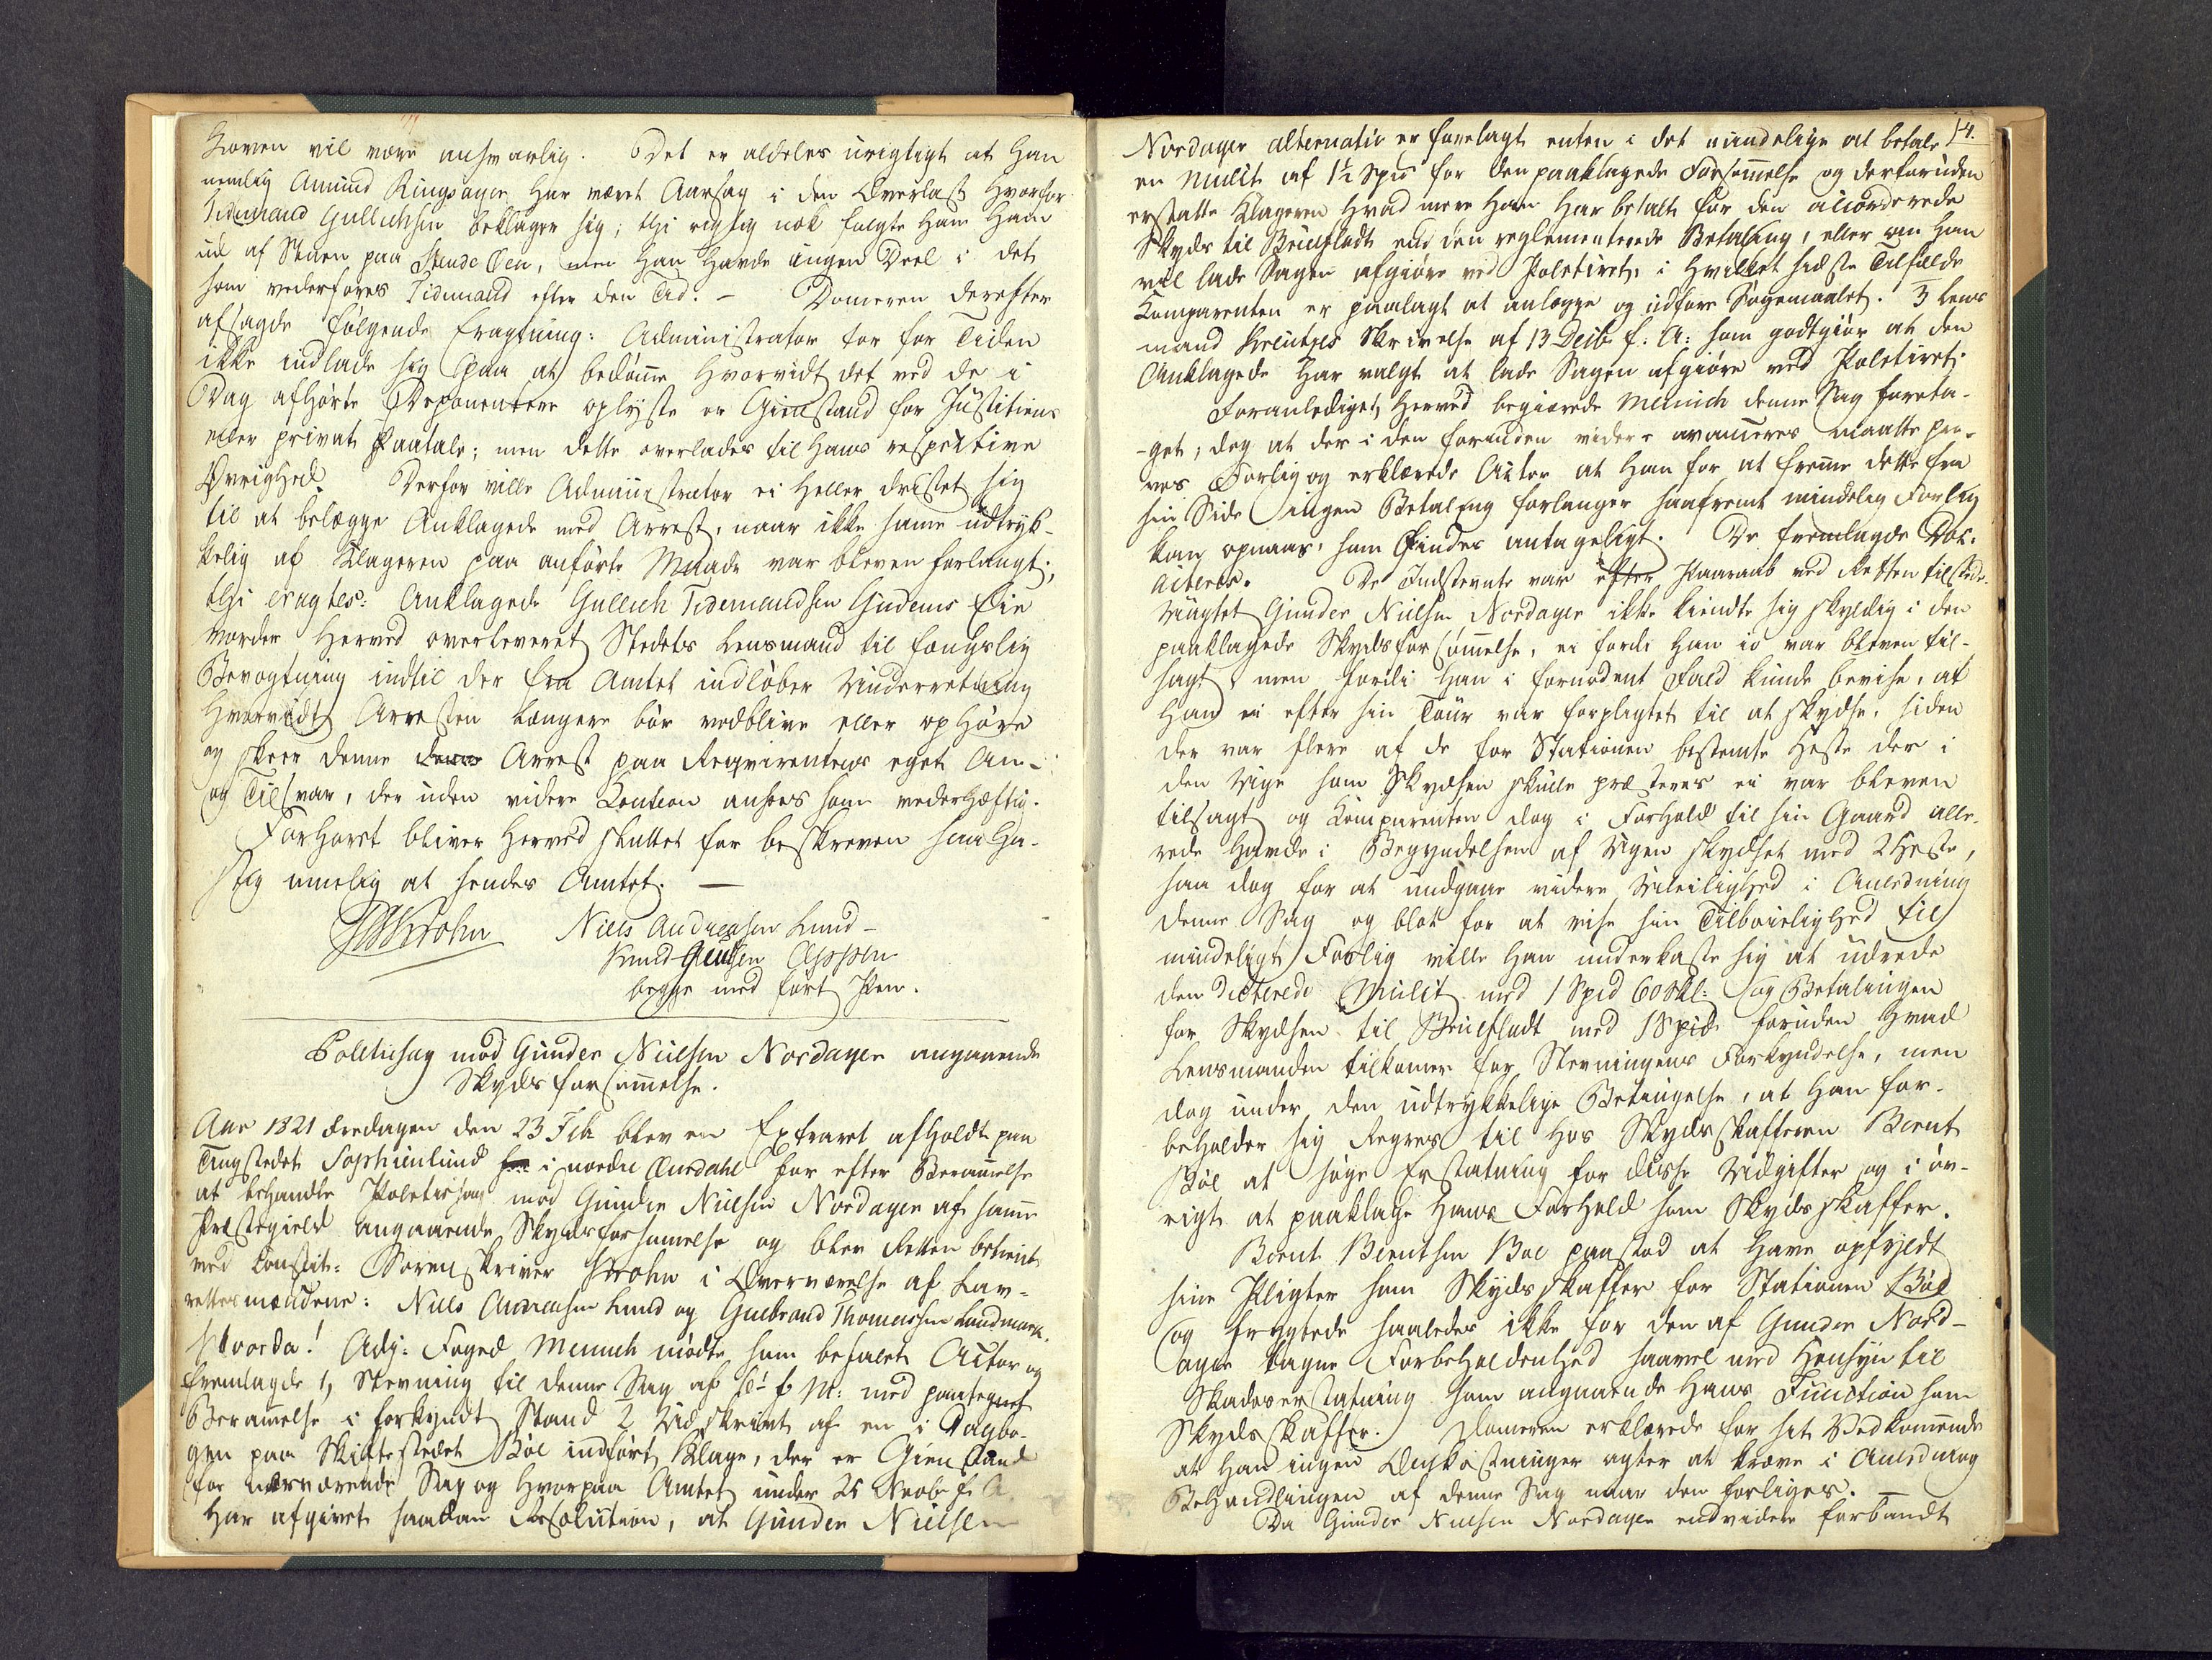 Loven vil være ansvarlig. Det er aldeles urigtigt at han
nemlig Amund Ringsager har været Aarsag i den Overlast hvorfor
Tidemand Gullichsen beklager sig; thi rigtig nok fulgte han ham
ud af Stuen paa Stende Øen, men han havde ingen Deel i det
som vederfores Tidemand efter den Tid. – Domeren derefter
afsagde følgende Eragtning: Administrator tør for Tiden
ikke indlade sig paa at bedømme hvorvidt det ved de i
Dag afhørte Deponentere oplyste er Gienstand for Justitiens
eller privat Paatale; men dette overlades til hans respective
Øvrighed. Derfor ville Administrator ei heller dristet sig
til at belægge Anklagede med Arrest, naar ikke samme udtryk-
kelig af Klageren paa anførte Maade var bleven forlangt;
thi eragtes: Anklagede Gullich Tidemandsen Gudems Eie
vorder herved overleveret Stedets Lensmand til fængslig
Bevogtning indtil der fra Amtet indløber Underretning
hvorvidt Arresten længere bør vedblive eller ophøre
og skeer denne Arrest paa Reqvirentens eget An-
og Tilsvar, der uden videre Caution ansees som vederhæftig.
Forhøret bliver herved sluttet for beskreven saa ha-
stig muelig at sendes Amtet. –
Krohn Niels Andreasen Lund –
Knud Olsen
begge med ført Pen.
Politiesag mod Gunder Nielsen Nordager angaaende
Skydsforsømmelse.
Aar 1821 Fredagen den 23 Feb. blev en Extraret afholdt paa
Tingstedet Sophienlund i nordre Aurdahl for efter Berammelse
at behandle Politiesag mod Gunder Nielsen Nordager af samme
Præstegield angaaende Skydsforsømmelse og blev Retten betient
ved Constit: Sorenskriver Krohn i Overværelse af Lav-
rettesmændene: Niels Andreasen Lund og Gulbrand Thomassen Landmark.
Hvorda! Adj: Foged Meinich mødte som befalet Actor og
fremlagde 1, Stevning til denne Sag af f. M: med paategnet
Berammelse i forkyndt Stand 2 Udskrivt af en i Dagbo-
gen paa Skiftestedet Bøe indført Klage, der er Gienstand
for nærværende Sag og hvorpaa Amtet under 25 Novb. f. A.
har afgivet saadan Resolution, at Gunder Nielsen
14.
Nordager alternativ er forelagt enten i det mindelige at betale
en Mulct af 1½ Spd for den paaklagede Forsømmelse og derforuden
erstatte Klageren hvad mere han har betalt for den accorderede
Skyds til Brufladt end den reglementerede Betaling, eller om han
vil lade Sagen afgiøre ved Politiret, i hvilket sidste Tilfælde
Comparenten er paalagt at anlægge og udføre Søgemaalet. 3 Lens-
mand Skrivelse af 13 Decbr f. A: som godtgiør at den
Anklagede har valgt at lade Sagen afgiøre ved Politiret.
Foranlediget herved begierede Meinich denne Sag foreta-
get; dog at der i den foruden videre avanceres maatte prø-
ves Forlig og erklærede Actor at han for at fremme dette fra
sin Side ingen Betaling forlanger saafremt mindelig Forlig
kan opnaaes, som findes antageligt. De fremlagde Doc:
acteres. De Indstevnte var efter Paaraab ved Retten tilstede.
Uagtet Gunder Nielsen Nordager ikke kiendte sig skyldig i den
paaklagede Skydsforsømmelse, ei fordi han io var bleven til-
sagt, men fordi han i fornødent Fald kunde bevise, at
han ei efter sin Tour var forpligtet til at skydse, siden
der var flere af de for Stationen bestemte Heste der i
den Uge som Skydsen skulle præsteres ei var bleven
tilsagt og Comparenten dog i Forhold til sin Gaard alle-
rede havde i Begyndelsen af Ugen skydset med 2 Heste,
saa dog for at undgaae videre Uleilighed i Anledning
denne Sag og blot for at vise sin Tilbøielighed til
mindeligt Forlig ville han underkaste sig at udrede
den dicterede Mulct med 1 Spd 60 Skl: og Betalingen
for Skydsen til Brufladt med 1 Spd foruden hvad
Lensmanden tilkomer for Stevningens Forkyndelse, men
dog under den udtrykkelige Betingelse, at han for-
beholder sig Regres til hos Skydsskafferen Bernt
Bøe at søge Erstatning for disse Udgifter og i øv-
rigt at paaklage hans Forhold som Skydsskaffer.
Bernt Berntsen Boe paastod at have opfyldt
sine Pligter som Skydsskaffer for Stationen Bøe
og frygtede saaledes ikke for den af Gunder Nord-
ager tagne Forbeholdenhed saavel med Hensyn til
Skadeserstatning som angaaende hans Function som
Skydsskaffer. Domeren erklærede for sit Vedkomende
at han ingen Omkostninger agter at kræve i Anledning
Behandlingen af denne Sag naar den forliges. –
Da Gunder Nielsen Nordager endvidere forbandt